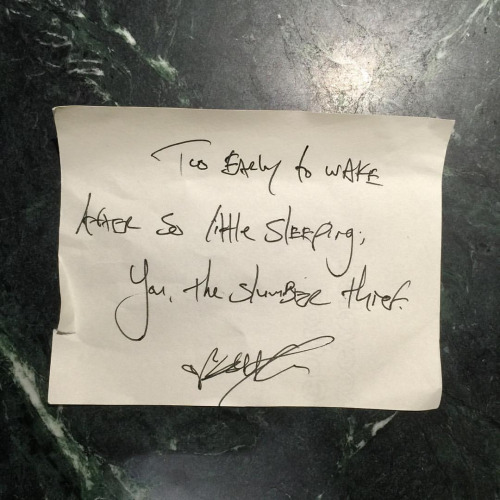 Too EARly to WAKE
AFTER so little SlEEping;
You, the slumBER thief.